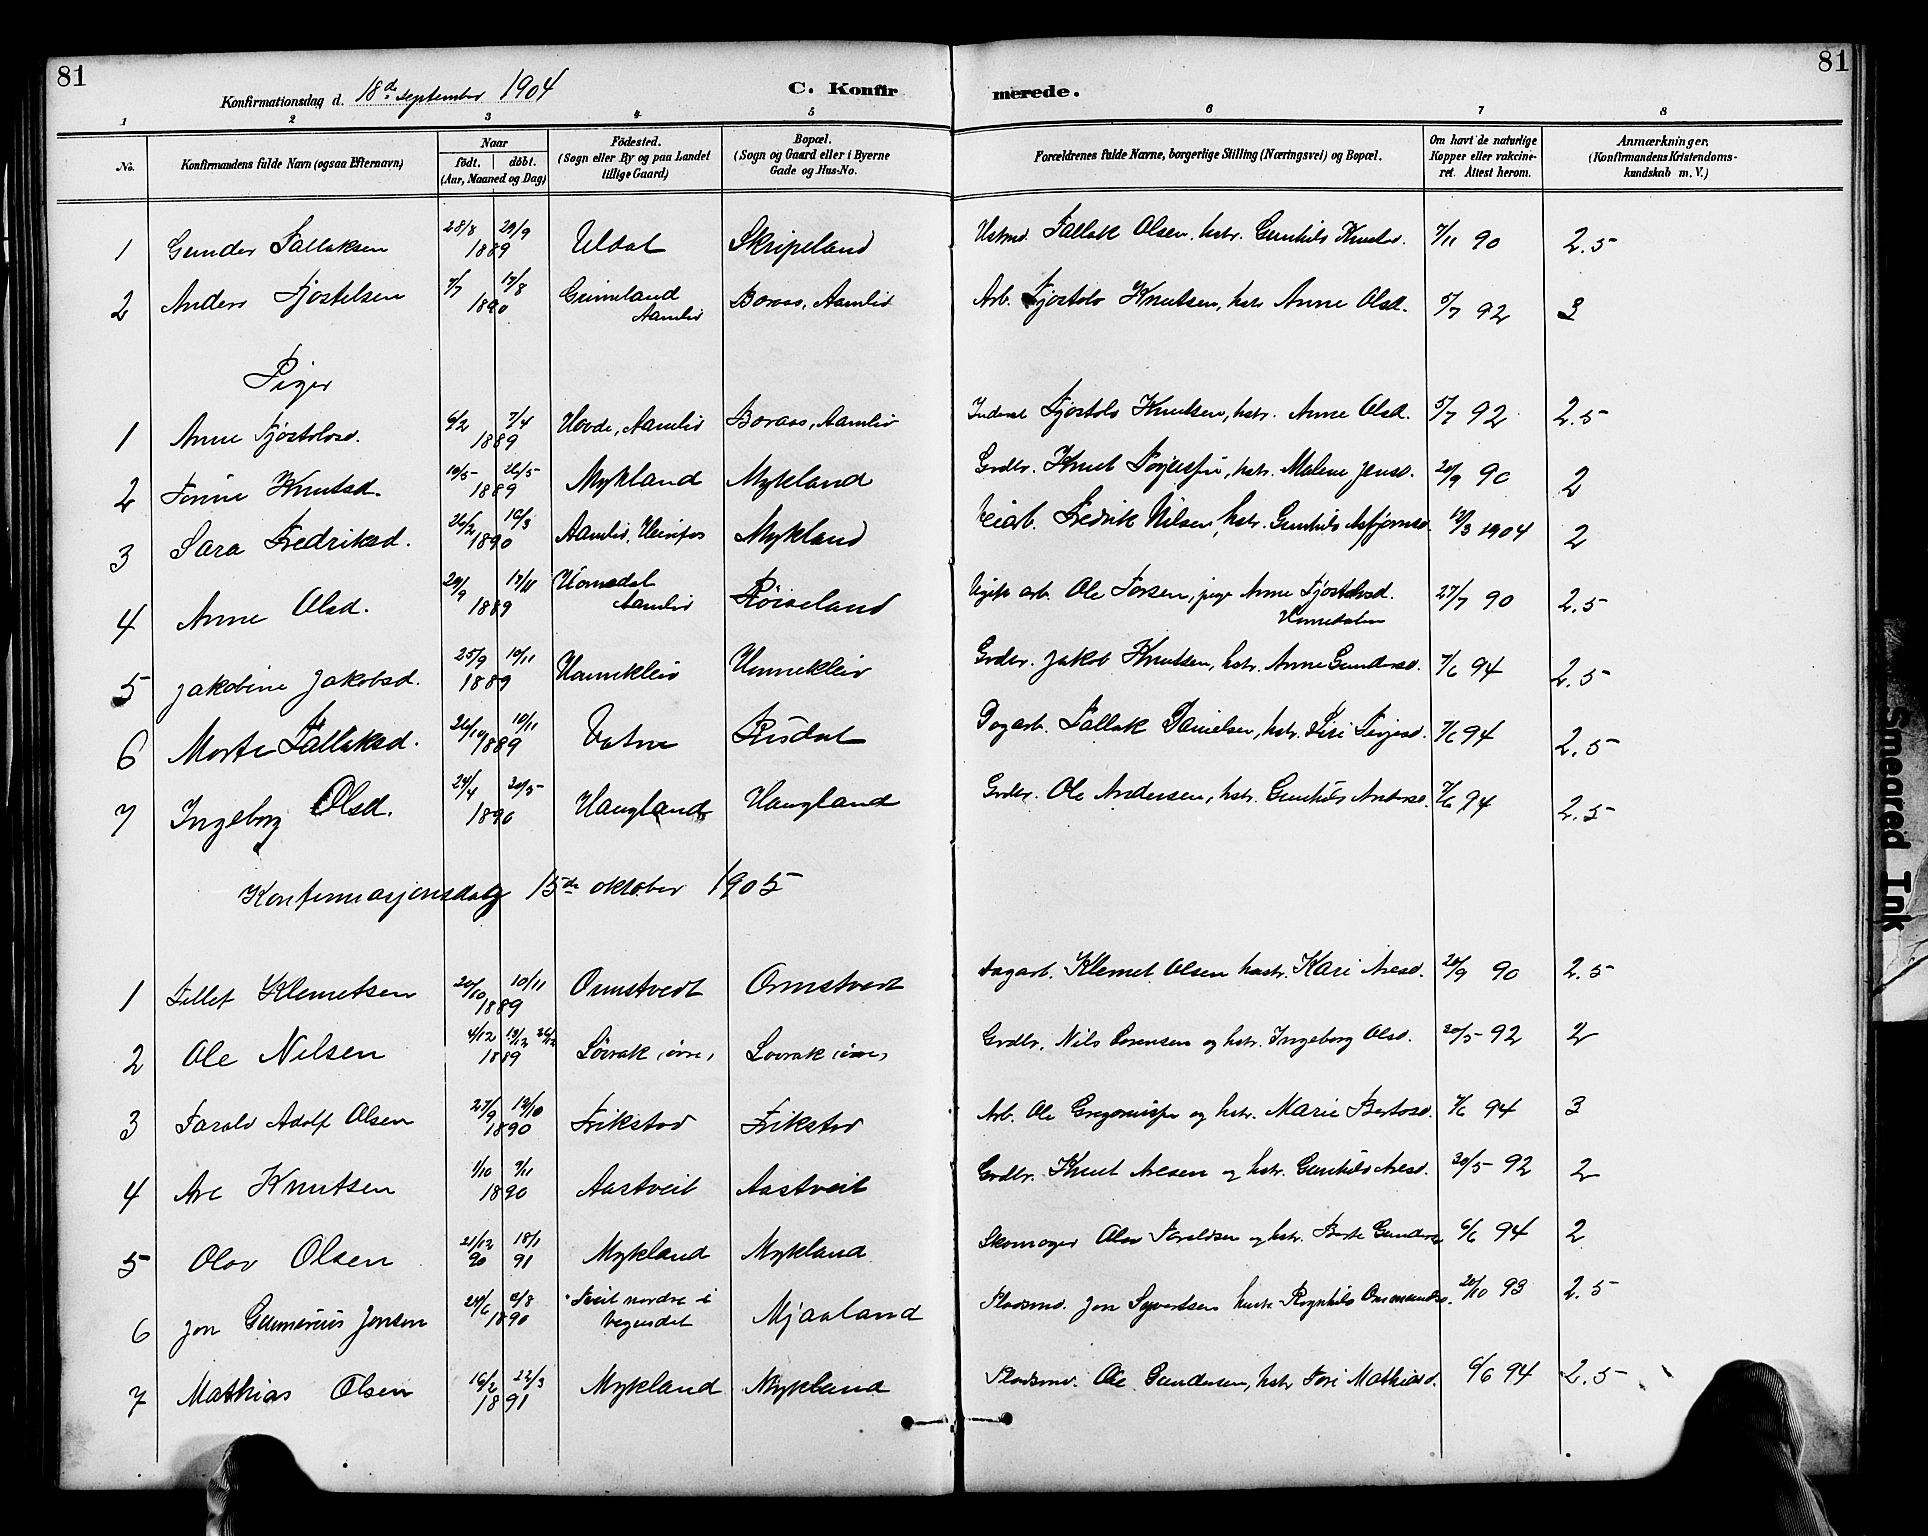 81
81
Konfirmationsdag d. 18de september 1904 C. Konfir merede.
1 2 3 4 5 6 7 8
No. Konfirmandens fulde Navn (ogsaa Efternavn) Naar født. døbt. (Aar, Maaned og Dag) Fødested. (Sogn eller By og paa Landet tillige Gaard) Bopæl. (Sogn og Gaard eller i Byerne Gade og Hus-No. Forældrenes fulde Navne, borgerlige Stilling (Næringsvei) og Bopæl. Om havt de naturlige Kopper eller vakcineret. Attest herom. Anmærkninger, (Konfirmandens Kristendomskundskab m. V.)
1 Gunder Tallaksen 28/8 29/9 1889 Uldal Skripeland Tallak Olsen, hstr. Gunhild Knutsd. 7/11 90 2.5
2 Anders Fjostolsen 7/7 17/8 1890 Grimeland Aamlid Boraas, Aamlid Arb. Fjostolv Knutsen, hstr. Anne Olsd. 5/7 92 3
Piger
1 Anne Fjostolvsd. 6/2 7/4 1889 Hovde, Aamlid Boraas, Aamlid Inderst Fjostolv Knutsen, hstr. Anne Olsd. 5/7 92 2.5
2 Tomine Knutsd. 10/5 26/5 1889 Mykland Mykland Grdbr. Knut Torjussen, hstr. Malene Jensd. 20/9 90 2
3 Sara Fredriksd. 26/2 16/3 1890 Aamlid, Heinfos Mykland Veiarb. Fredrik Nilsen, hstr. Gunhild Asbjørnsd. 12/3 1904 2
4 Anne Olsd. 29/9 17/11 1889 Homsdal Aamlid Røiseland Ugift arb. Ole Torsen, pige Anne Fjostolvsd. 27/7 90 2.5
5 Jakobine Jakobsd. 25/9 10/11 1889 Hunnekleiv Hunnekleiv Grdbr. Jakob Knutsen, hstr. Anne Gundersd. 7/6 94 2.5
6 Marte Tallaksd. 26/10 10/11 1889 Vatne Risdal Dagarb. Tallak Danielsen, hstr. Siri Terjesd. 7/6 94 2.5
7 Ingeborg Olsd. 24/4 20/5 1890 Haugland Haugland Grdbr. Ole Andersen, hstr. Gunhild Andersd. 7/6 94 2.5
Konfirmasjonsdag 15de oktober 1905
1 Tellef Klemetsen 20/10 10/11 1889 Ormstvedt Ormstvedt Dagarb. Klemet Olsen hustr. Kari Aresd. 20/9 90 2.5
2 Ole Nilsen 4/12 13/12 26/12 1889 Løvrak, øvre, Lovrak, øvre, Grdbr. Nils Sørensen og hstr. Ingeborg Olsd. 20/5 92 2
3 Tarald Adolf Olsen 27/9 12/10 1890 Frikstad Frikstad Arb. Ole Gregoriussen og hstr. Marie Bertosd. 7/6 94 3
4 Are Knutsen 1/10 9/11 1890 Aastveit Aastveit Grdbr. Knut Aresen og hstr. Gunhild Aresd. 20/5 92 2
5 Olav Olsen 21/12 90 18/1 91 Mykland Mykland Skomager Olav Taraldsen og hstr. Berte Gundersd. 6/6 94 2
6 Jon Gunnerius Jonsen 24/6 2/8 1890 Tveit nordre i Vegusdal Mjaaland Pladsmd. Jon Syvertsen hustr. Ragnhild Ommundsd. 20/10 93 2.5
7 Mathias Olsen 16/2 22/3 1891 Mykland Mykland Pladsmd. Ole Gundersen, hstr. Tore Mathiasd. 6/6 94 2.5
Smeared Ink